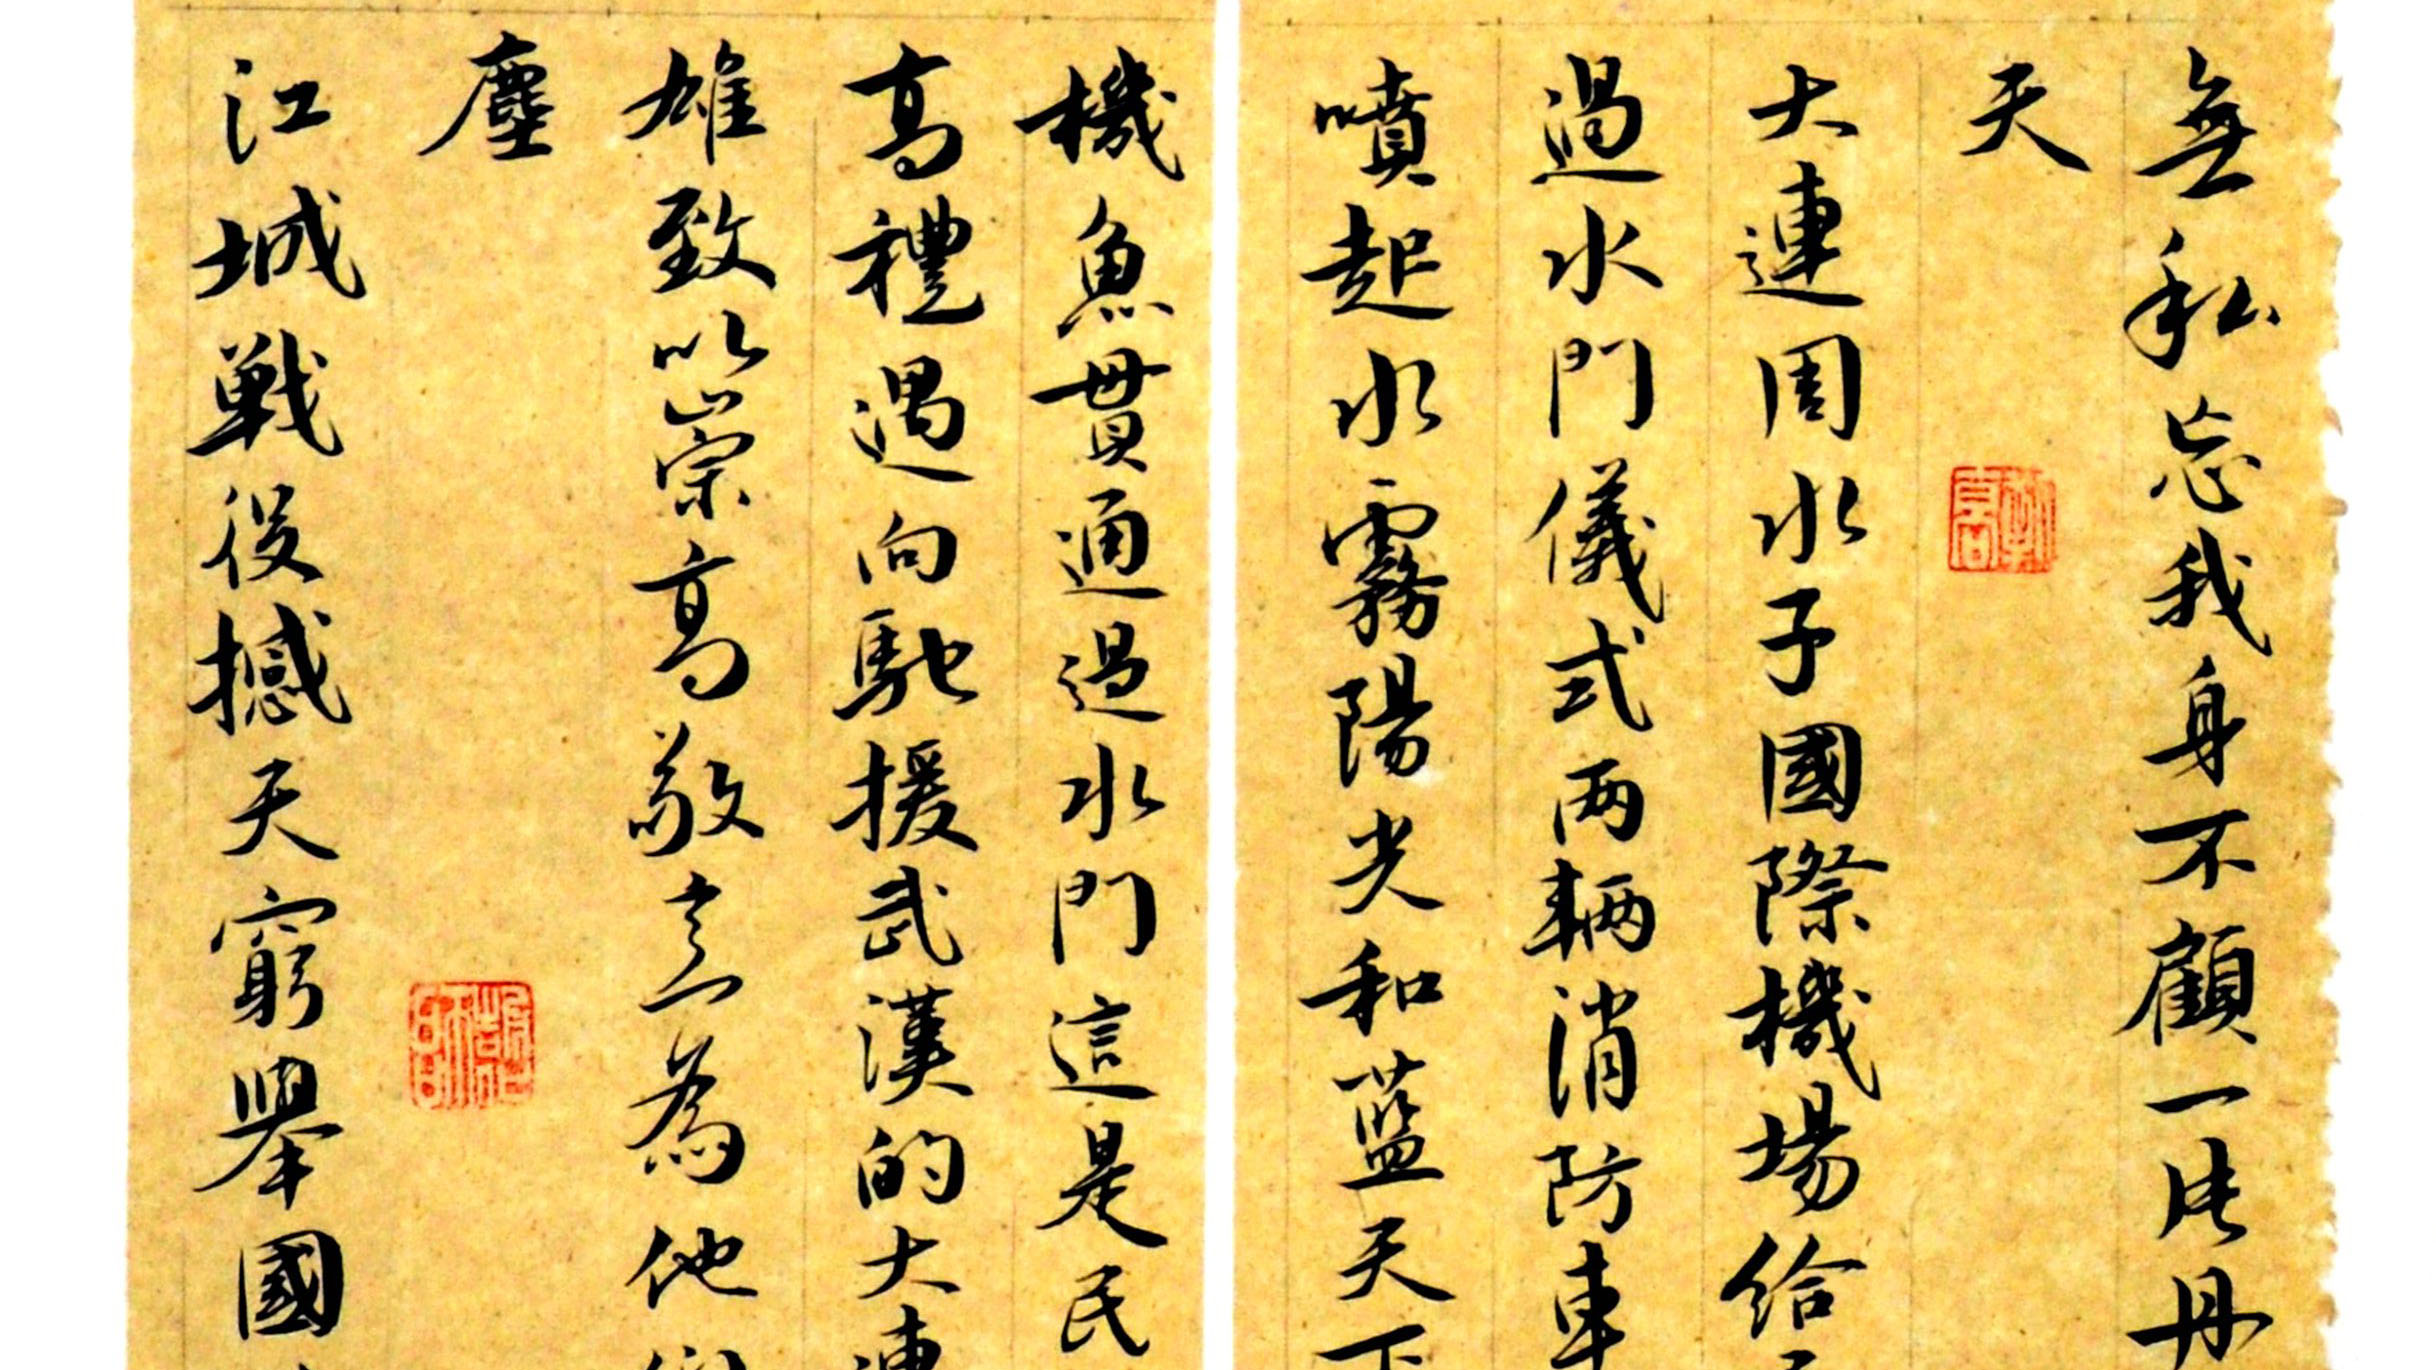 無私忘我身不顧一片丹
天
大連周水子國際機場給
過水門儀式两輛消防車
噴起水霧陽光和藍天下
機魚貫通過水門這是民
高禮遇向馳援武漢的大連
雄致以崇高敬意為他
塵
江城戰役撼天窮舉國